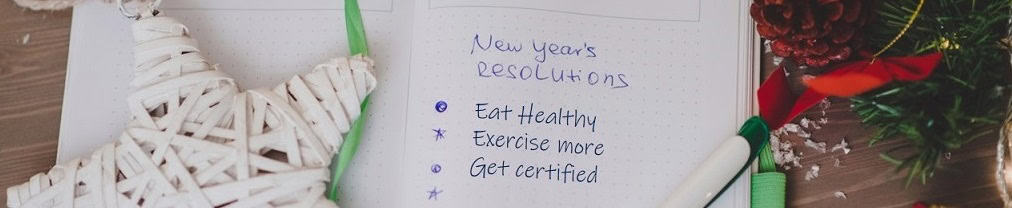 New year's
RESOLUTIONS
Eat Healthy
Exercise more
Get certified